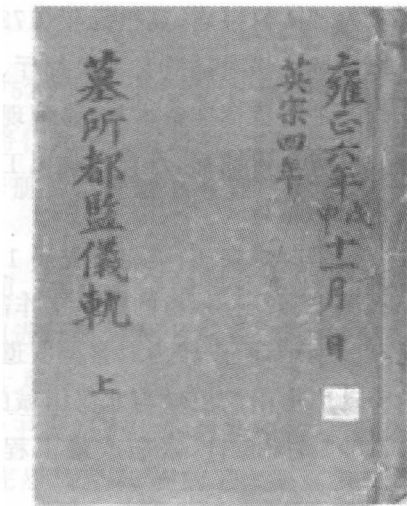 雍正六年戊申十一月 日
英宗四年
墓所都監儀軌 上